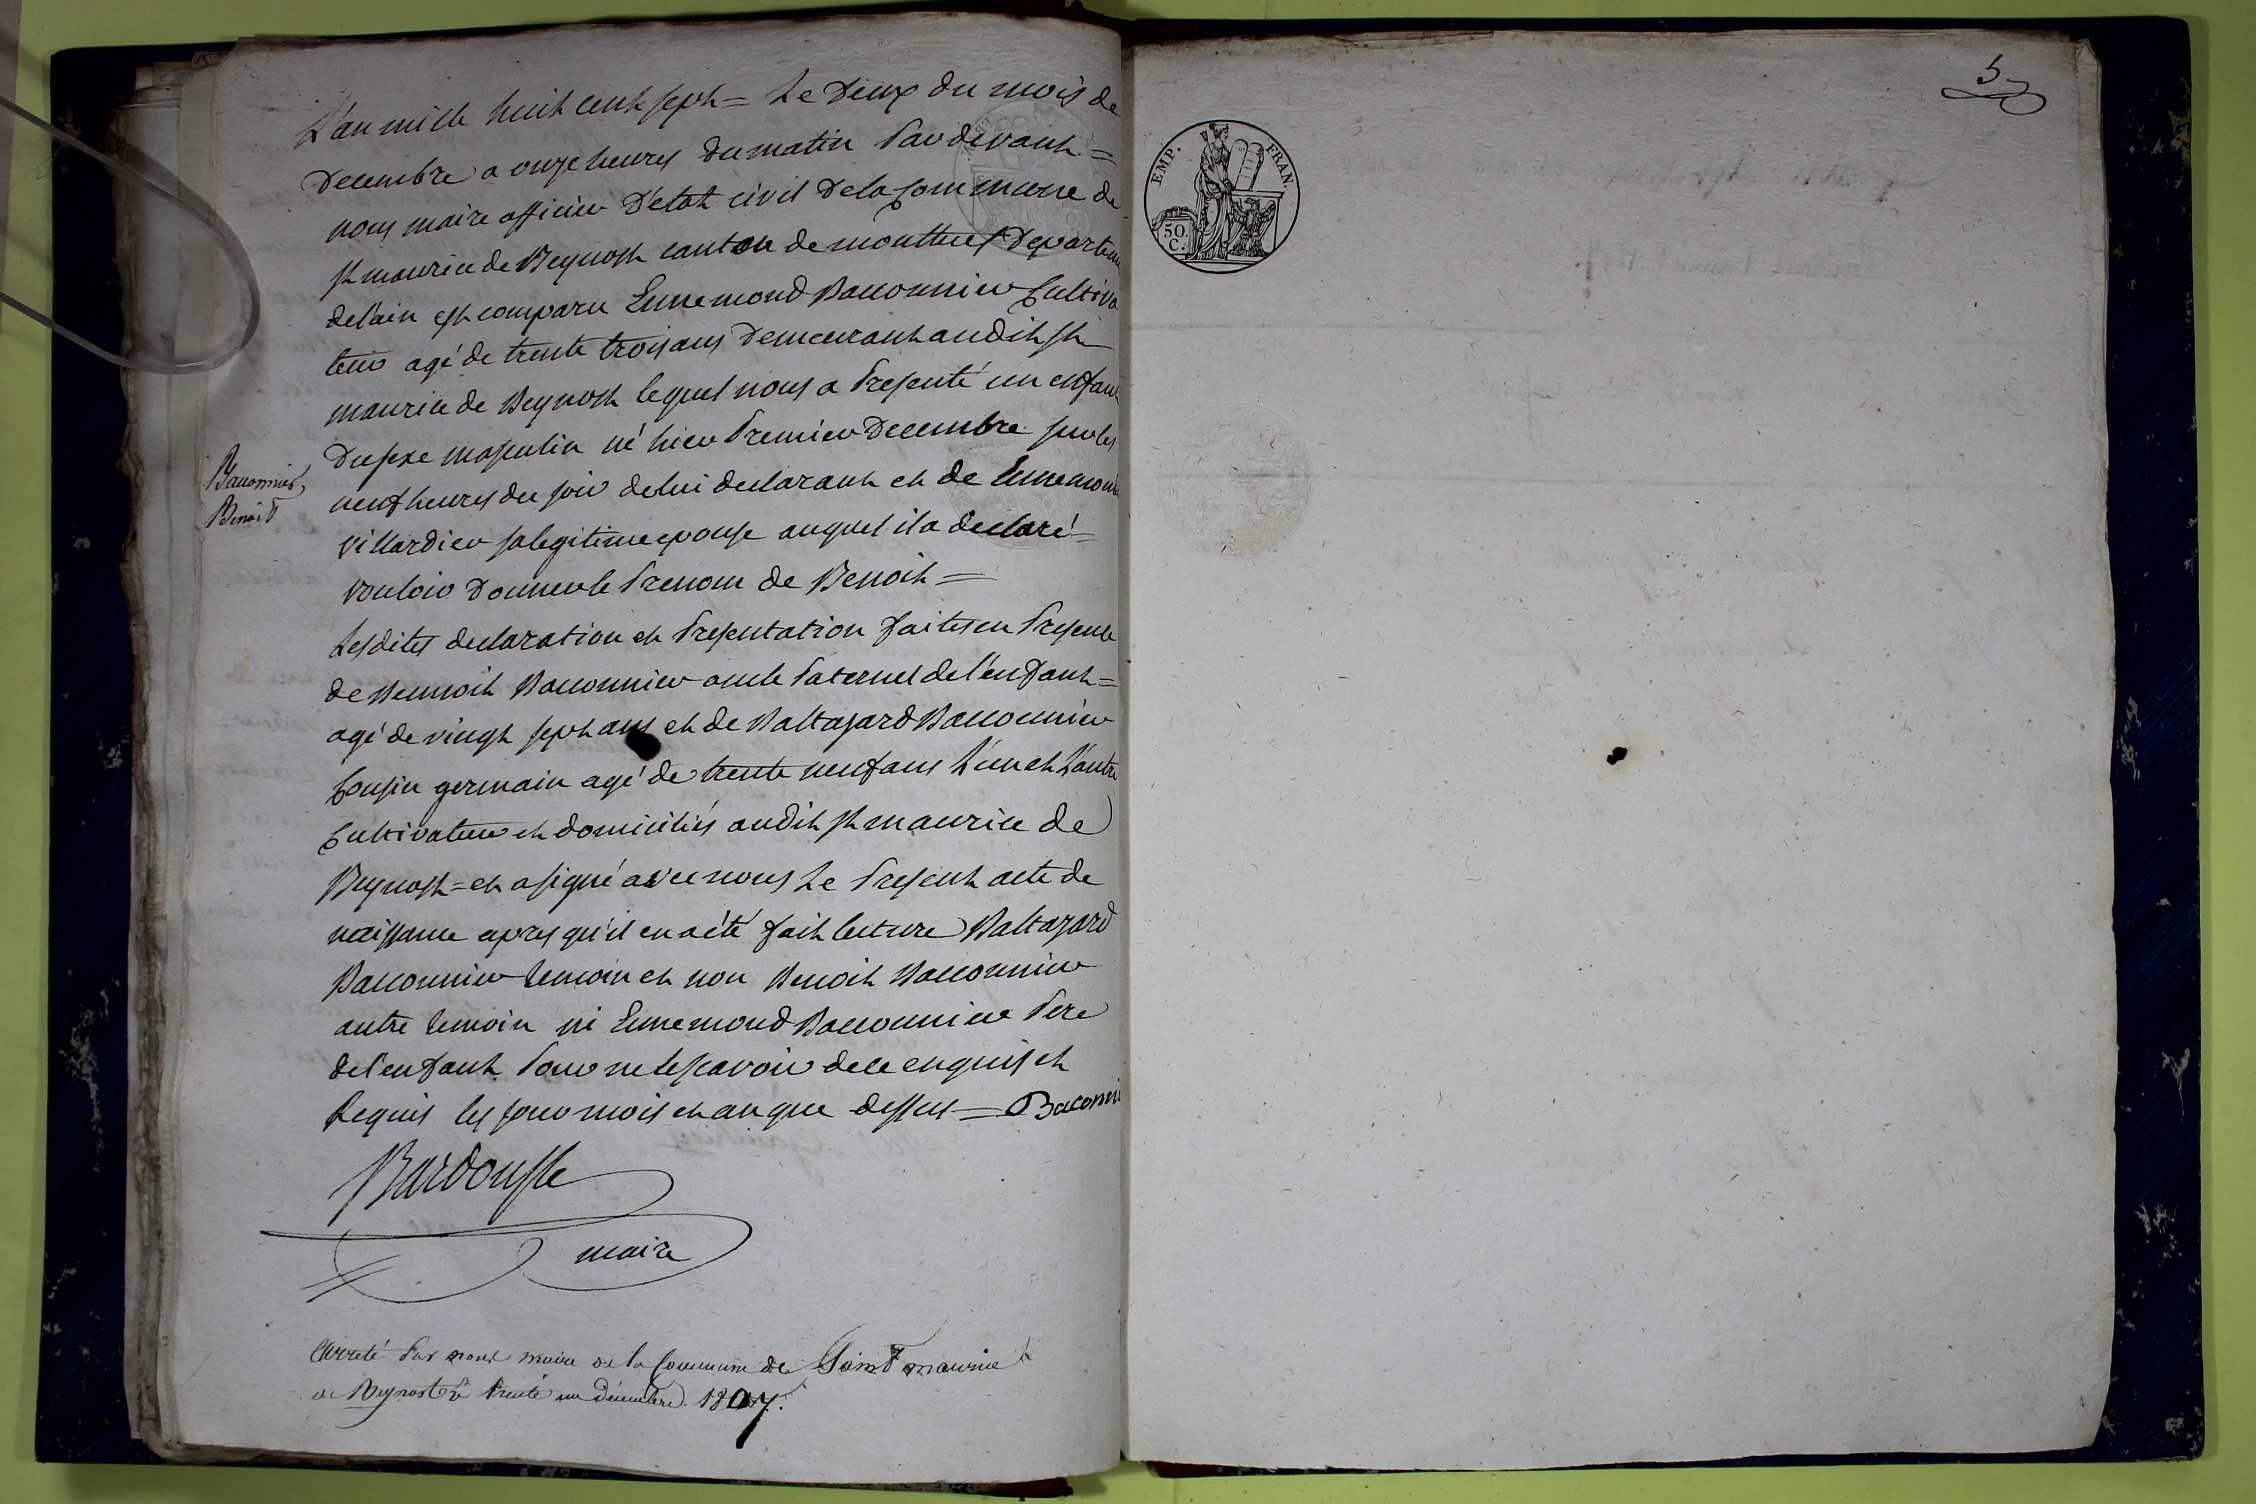 L'an mille huit cent sept = Le Deux du mois de
Decembre a onze heures du matin Pardevant =
nous maire officier D'état civil De la Commune de
St maurice de Beynost canton de montluel Departem
de l'ain est comparu Ennemond Bacconnier Cultiva
teur agé de trente trois ans Demeurant audit St
maurice de Beynost lequel nous a Presenté un enfant
Du sexe masculin né hier Premier Decembre sur les
neuf heures du soir de lui declarant et de Ennemonde
Villardier sa legitime epouse auquel il a declaré =
vouloir Donner le Prenom de Benoit =
Bacconnier
Benoit
Lesdites declaration et Presentation faites en Presence
de Bennoit Bacconnier oncle Paternel de l'enfant =
agé de vingt sept ans et de Baltazard Bacconnier
Cousin germain agé de trente neuf ans L'un et L'autre
Cultivateur et domiciliés audit St maurice de
Beynost = et a signé avec nous Le Present acte de
naissance apres qu'il en a été fait lecture Baltazard
Bacconnier temoin et non Benoit Bacconnier
autre temoin ni Ennemond Bacconnier Pere
de l'enfant Pour ne le scavoir de ce enquis et
Requis les jour mois et an que dessus = Baconni
Bardousse
maire
arreté Par nous maire de la Commune de Saint maurice
de Beynost le trente un décembre 1807.
5
EMP. FRAN.
50.
C.